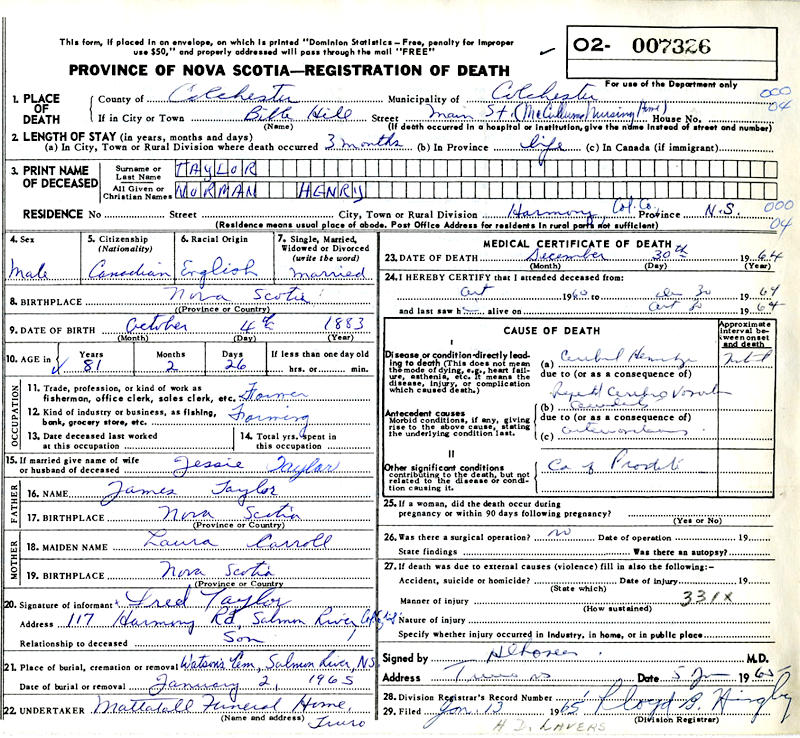 This form, if placed in an envelope, on which is printed "Dominion Statistics - Free, penalty for improper
use $50," and properly addressed will pass through the mail "FREE"
O2- 007326
PROVINCE OF NOVA SCOTIA—REGISTRATION OF DEATH
For use of the Department only
1. PLACE OF DEATH
County of Colchester Municipality of Colchester 000
If in City or Town Bible Hill Street Main St. (McCullums Nursing Home) House No. 04
(Name) (If death occurred in a hospital or institution, give the name instead of street and number)
2. LENGTH OF STAY (in years, months and days)
(a) In City, Town or Rural Division where death occurred 3 months (b) In Province life (c) In Canada (if immigrant)
3. PRINT NAME OF DECEASED
Surname or Last Name TAYLOR
All Given or Christian Names NORMAN HENRY
RESIDENCE No Street City, Town or Rural Division Harmony Col. Co. Province N.S. 000
(Residence means usual place of abode. Post Office Address for residents in rural parts not sufficient) 04
4. Sex Male
5. Citizenship (Nationality) Canadian
6. Racial Origin English
7. Single, Married, Widowed or Divorced (write the word) Married
8. BIRTHPLACE Nova Scotia
(Province or Country)
9. DATE OF BIRTH October 4th 1883
(Month) (Day) (Year)
10. AGE in Years 81 Months 2 Days 26 If less than one day old
hrs. or min.
OCCUPATION
11. Trade, profession, or kind of work as
fisherman, office clerk, sales clerk, etc. Farmer
12. Kind of industry or business, as fishing,
bank, grocery store, etc. Farming
13. Date deceased last worked
at this occupation
14. Total yrs. spent in
this occupation
15. If married give name of wife
or husband of deceased Jessie Taylor
FATHER
16. NAME James Taylor
17. BIRTHPLACE Nova Scotia
(Province or Country)
MOTHER
18. MAIDEN NAME Laura Carroll
19. BIRTHPLACE Nova Scotia
(Province or Country)
20. Signature of informant Fred Taylor
Address 117 Harmony Rd, Salmon River, Col. Co. N.S.
Relationship to deceased Son
21. Place of burial, cremation or removal Watson's Cem, Salmon River, NS
Date of burial or removal January 2, 1965
22. UNDERTAKER Mattatall Funeral Home,
(Name and address) Truro
MEDICAL CERTIFICATE OF DEATH
23. DATE OF DEATH December 30th 1964
(Month) (Day) (Year)
24. I HEREBY CERTIFY that I attended deceased from:
Oct 1960 to Dec 30 1964
and last saw h alive on 1964
CAUSE OF DEATH
Approximate interval between onset and death
I
Disease or condition directly leading
to death (This does not mean
the mode of dying, e.g., heart failure,
asthenia, etc. It means the
disease, injury, or complication
which caused death.)
(a) Cerebral
due to (or as a consequence of)
Repeated Cerebro Vascular
Antecedent causes
Morbid conditions, if any, giving
rise to the above cause, stating
the underlying condition last.
(b) Accidents
due to (or as a consequence of)
(c)
II
Other significant conditions
contributing to the death, but not
related to the disease or condition
causing it.
Ca of Prostate
25. If a woman, did the death occur during
pregnancy or within 90 days following pregnancy?
(Yes or No)
26. Was there a surgical operation? no Date of operation 19
State findings Was there an autopsy?
27. If death was due to external causes (violence) fill in also the following:-
Accident, suicide or homicide? Date of injury 19
(State which)
Manner of injury 331X
(How sustained)
Nature of injury
Specify whether injury occurred in industry, in home, or in public place
Signed by M.D.
Address Truro NS Date 5 Jan 1965
28. Division Registrar's Record Number 1
29. Filed Jan. 13 1965 Lloyd G.
(Division Registrar)
H D LAVERS